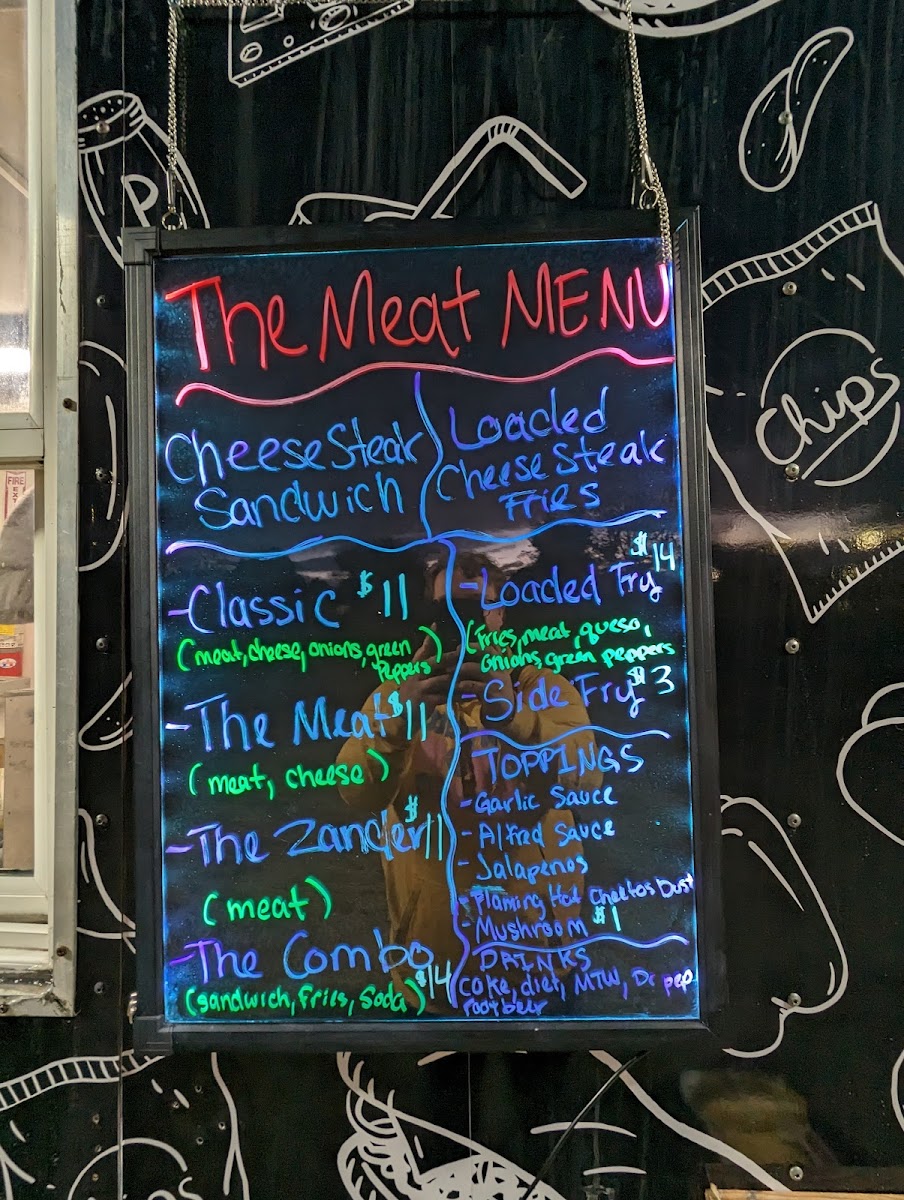 The Meat MENU
CheeseSteak
Sandwich
Loaded
CheeseSteak
Fries
-Classic $11
(meat, cheese, onions, green
peppers)
-The Meat $11
(meat, cheese)
-The Zander $11
(meat)
-The Combo $14
(sandwich, fries, soda)
-Loaded Fry $14
(fries, meat, queso,
onions, green peppers
-Side Fry $3
TOPPINGS
-Garlic Sauce
-Alfred Sauce
-Jalapenos
-Flaming Hot Cheetos Dust
-Mushroom $1
DRINKS
coke, diet, MTW, Dr pep
root beer
P
Chips
FIRE